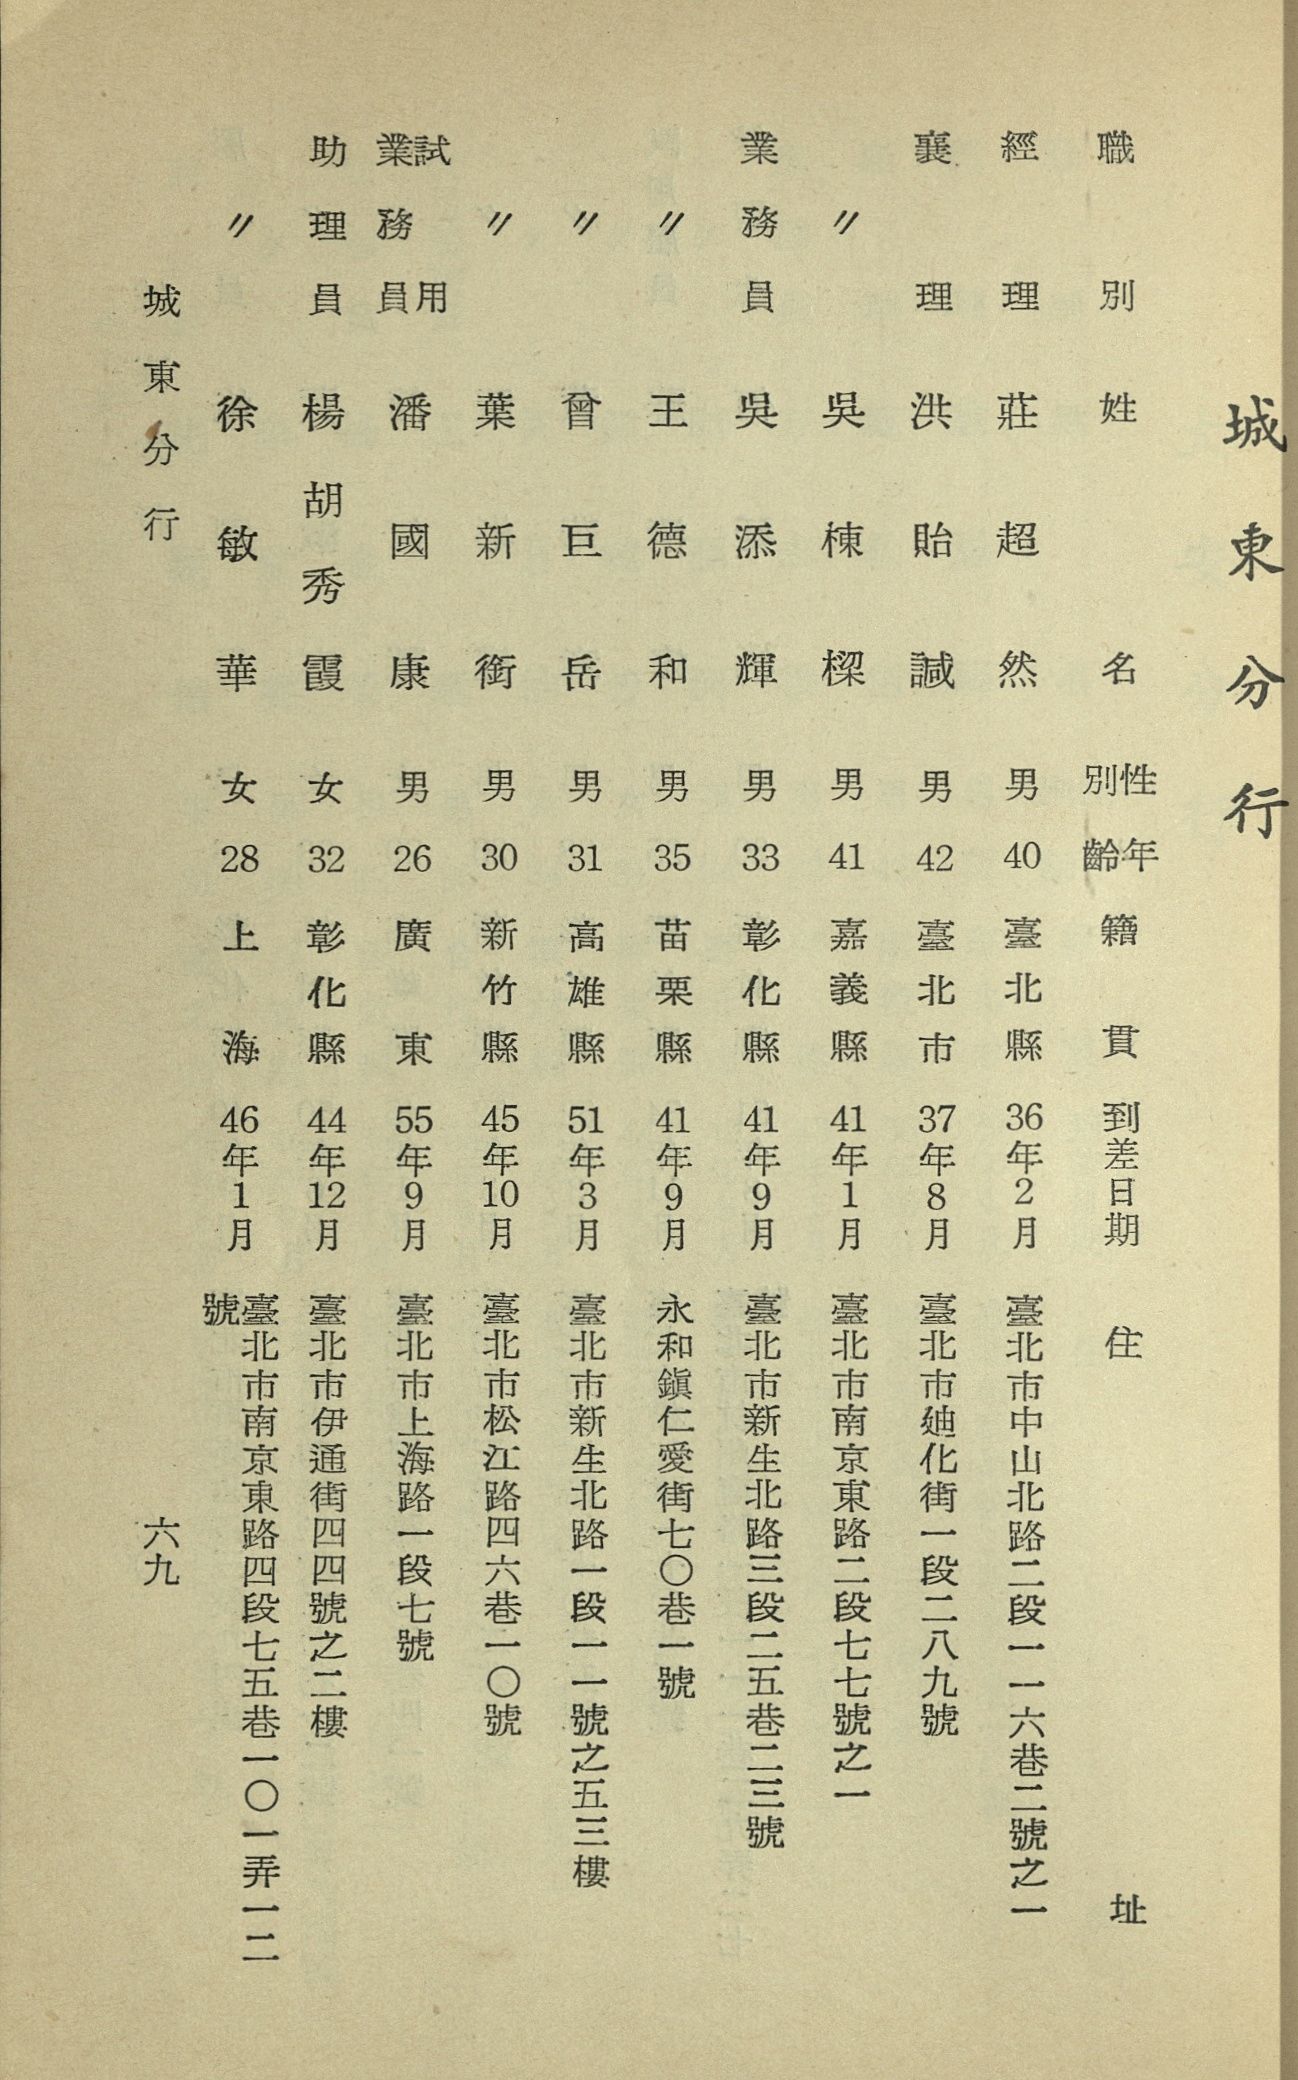 城東分行
職別 姓名 性別 年齡 籍貫 到差日期 住址
經理 莊超然 男 40 臺北縣 36年2月 臺北市中山北路二段一一六巷二號之一
襄理 洪貽諴 男 42 臺北市 37年8月 臺北市廸化街一段二八九號
〃 吳棟樑 男 41 嘉義縣 41年1月 臺北市南京東路二段七七號之一
業務員 吳添輝 男 33 彰化縣 41年9月 臺北市新生北路三段二五巷二三號
〃 王德和 男 35 苗栗縣 41年9月 永和鎭仁愛街七〇巷一號
〃 曾巨岳 男 31 高雄縣 51年3月 臺北市新生北路一段一一號之五三樓
〃 葉新銜 男 30 新竹縣 45年10月 臺北市松江路四六巷一〇號
試用業務員 潘國康 男 26 廣東 55年9月 臺北市上海路一段七號
助理員 楊胡秀霞 女 32 彰化縣 44年12月 臺北市伊通街四四號之二樓
〃 徐敏華 女 28 上海 46年1月 臺北市南京東路四段七五巷一〇一弄一二
號
城東分行 六九